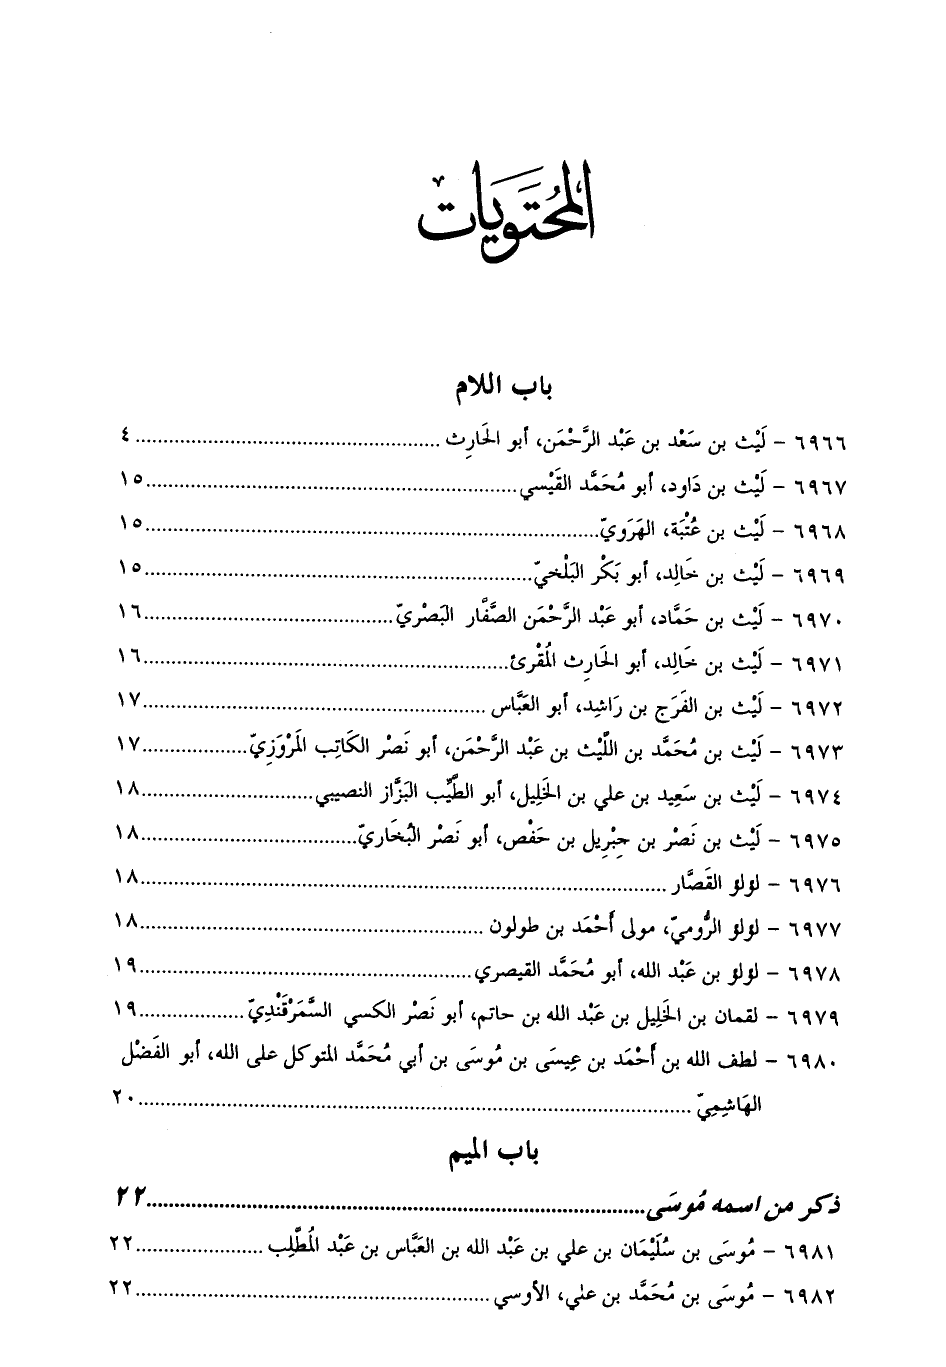 المحتويات
باب اللام
٦٩٦٦ - لَيْث بن سَعْد بن عَبْد الرَّحْمَن، أبو الحَارِث ........ ٤
٦٩٦٧ - لَيْث بن دَاود، أبو مُحَمَّد القَيْسي ........ ١٥
٦٩٦٨ - لَيْث بن عُتْبَة، الهَرَويّ ........ ١٥
٦٩٦٩ - لَيْث بن خَالِد، أبو بَكْر البَلْخيّ ........ ١٥
٦٩٧٠ - لَيْث بن حَمَّاد، أبو عَبْد الرَّحْمَن الصَّفَّار البَصْريّ ........ ١٦
٦٩٧١ - لَيْث بن خَالِد، أبو الحَارِث المُقْرئ ........ ١٦
٦٩٧٢ - لَيْث بن الفَرَج بن رَاشِد، أبو العَبَّاس ........ ١٧
٦٩٧٣ - لَيْث بن مُحَمَّد بن اللَّيْث بن عَبْد الرَّحْمَن، أبو نَصْر الكَاتِب المَرْوَزِيّ ........ ١٧
٦٩٧٤ - لَيْث بن سَعِيد بن علي بن الخَلِيل، أبو الطَّيِّب البَزَّاز النصيبي ........ ١٨
٦٩٧٥ - لَيْث بن نَصْر بن جِبْرِيل بن حَفْص، أبو نَصْر البُخَاريّ ........ ١٨
٦٩٧٦ - لؤلؤ القَصَّار ........ ١٨
٦٩٧٧ - لؤلؤ الرُّوميّ، مولى أَحْمَد بن طولون ........ ١٨
٦٩٧٨ - لؤلؤ بن عَبْد الله، أبو مُحَمَّد القيصري ........ ١٩
٦٩٧٩ - لقمان بن الخَلِيل بن عَبْد الله بن حاتم، أبو نَصْر الكسي السَّمَرْقَنْديّ ........ ١٩
٦٩٨٠ - لطف الله بن أَحْمَد بن عِيسَى بن مُوسَى بن أبي مُحَمَّد المتوكل على الله، أبو الفَضْل
الهَاشِمِيّ ........ ٢٠
باب الميم
ذكر من اسمه مُوسَى ........ ٢٢
٦٩٨١ - مُوسَى بن سُلَيْمَان بن علي بن عَبْد الله بن العَبَّاس بن عَبْد المُطَّلِب ........ ٢٢
٦٩٨٢ - مُوسَى بن مُحَمَّد بن علي، الأوسي ........ ٢٢